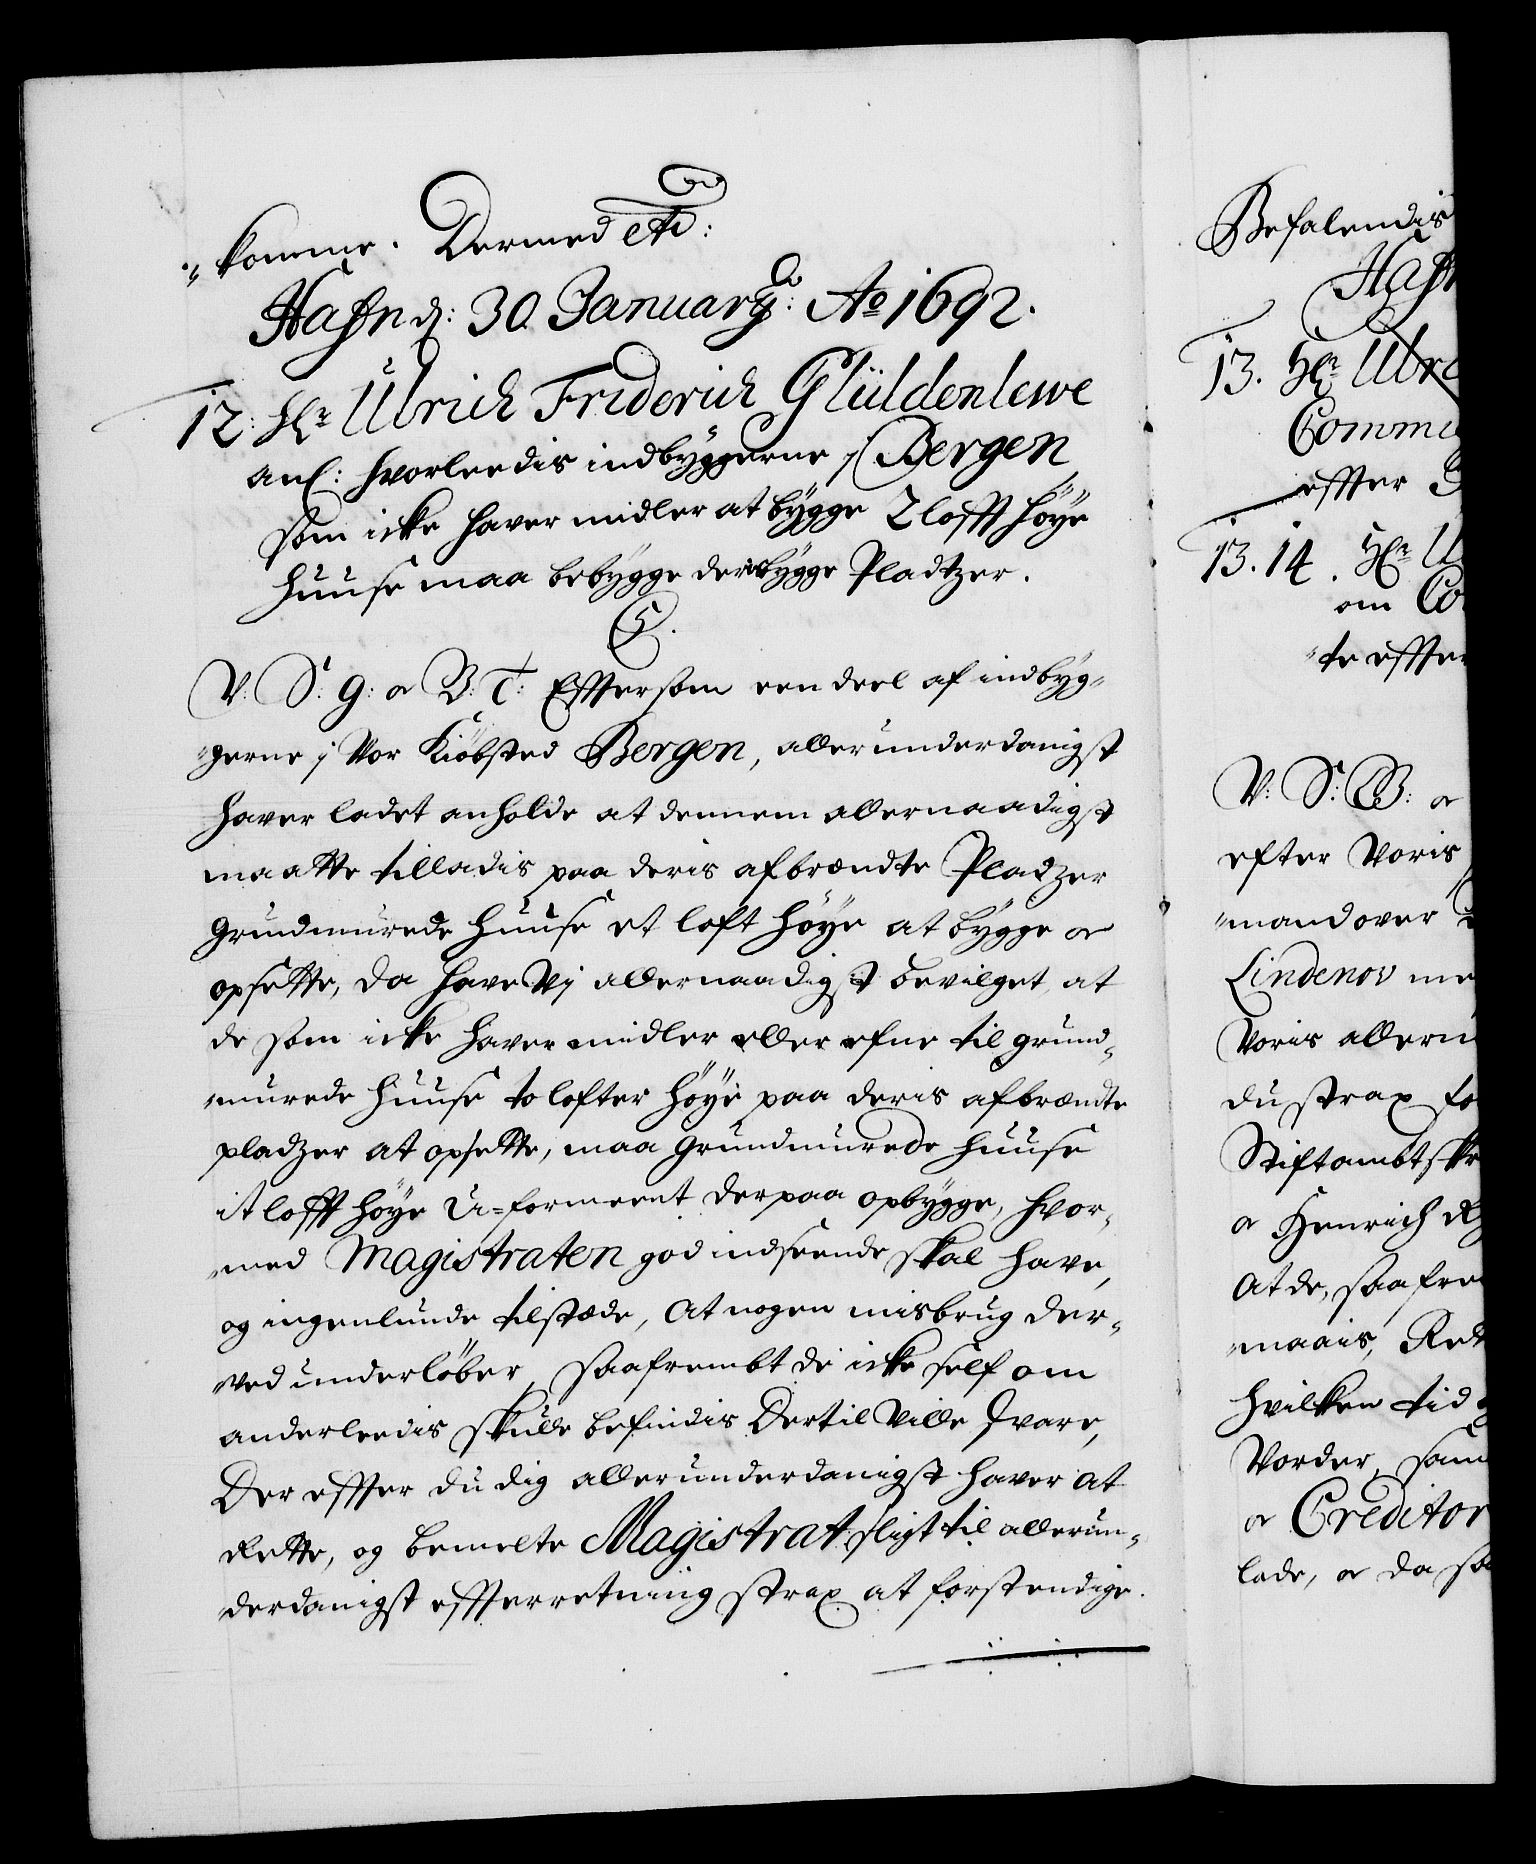 komme. Dermed etc:
Hafn d: 30 Januarÿ: Ao 1692.
12. Hr Ulrich Friderich Glüldenlewe
anl: hvorleedis indbyggerne j Bergen
som icke hafver midler at bÿgge 2 lofft höÿe
huuse maa bebÿgge deris Pladtzer.
C5.
V: S: g: oc B: T: Efftersom een deel af indbÿg-
gerne j Vor Kiöbsted Bergen, allerunderdanigst
hafver ladet anholde at dennem allernaadigst
maatte tilladis paa deris afbrændte Pladzer
Grundmurede huuse et loft höÿe at bÿgge oc
opsette, da have Vj allernaadigst bevilget, at
de som icke hafver midler eller efne til grund-
murede huuse to lofter höÿe paa deris afbrændte
pladzer at opsette, maa grundmurede huuse
it lofft höÿe U-formeent derpaa opbygge, hvor-
med Magistraten god indseende skal have,
og ingenlunde tilstæde, at nogen misbrug der-
ved underløber, saafrembt de icke self om
anderleedis skulle befindis dertil ville svare,
Der effter du dig allerunderdanigst haver at
rette, og bemelte Magistrat sligt til allerun-
derdanigst effterretning strax at forstendige.
Befalendis
Hafn
13. Hr Ulri
Commi
effter
13. 14. Hr U
om Co
te effter
V: S: G: oc
efter Voris
mand over
Lindenov me
Voris allern
du strax fo
Stiftambtskr
oc Henrich
at de, saafre
maais, Ret
hvilken tid
Vorder, sam
oc Creditor
lade, oc da sa